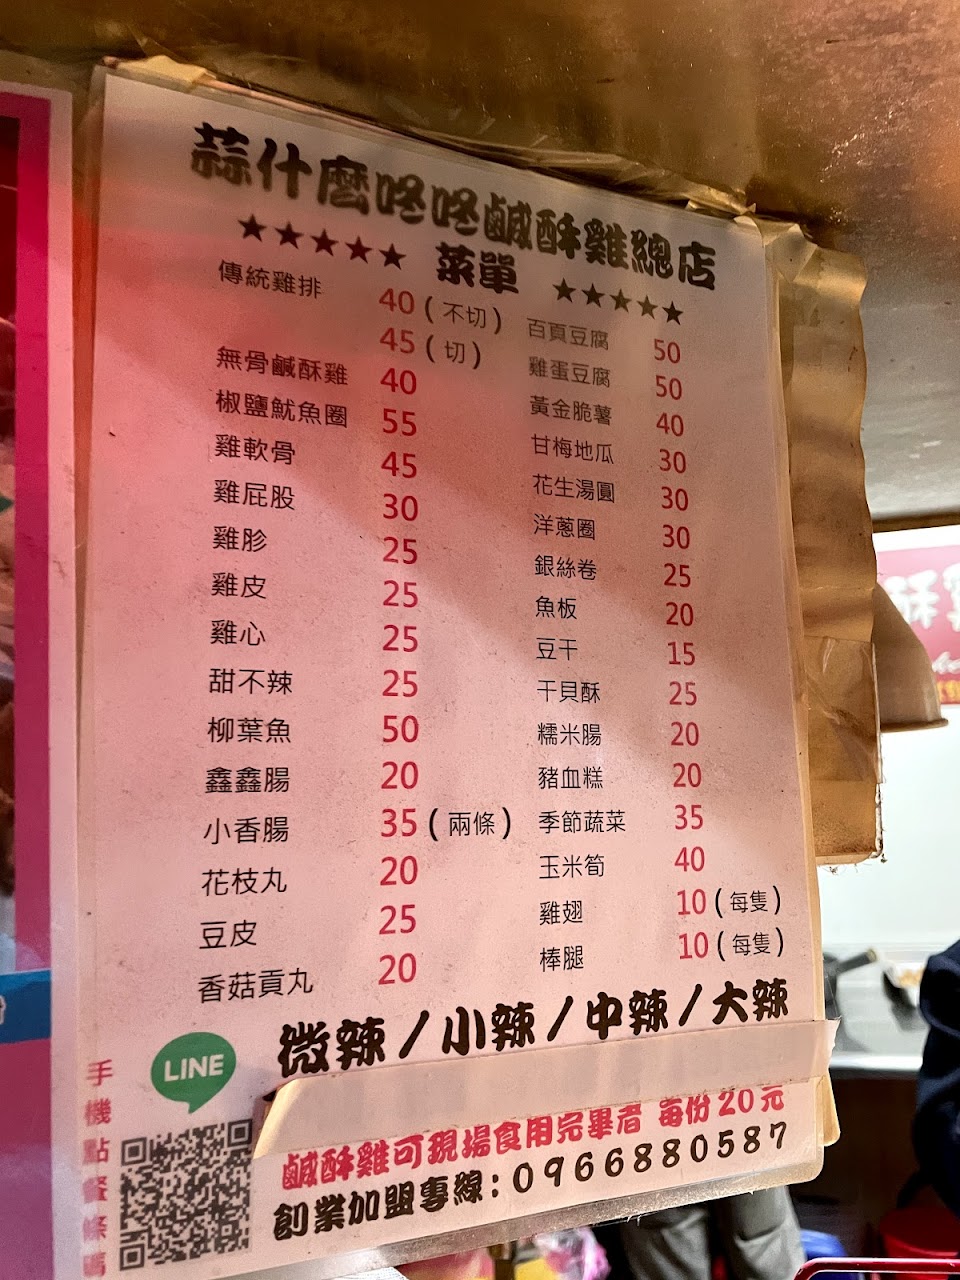 蒜什麼咚咚鹹酥雞總店
★★★★★ 菜單 ★★★★★
傳統雞排 40 (不切)
45 (切)
無骨鹹酥雞 40
椒鹽魷魚圈 55
雞軟骨 45
雞屁股 30
雞胗 25
雞皮 25
雞心 25
甜不辣 25
柳葉魚 50
鑫鑫腸 20
小香腸 35 (兩條)
花枝丸 20
豆皮 25
香菇貢丸 20
百頁豆腐 50
雞蛋豆腐 50
黃金脆薯 40
甘梅地瓜 30
花生湯圓 30
洋蔥圈 30
銀絲卷 25
魚板 20
豆干 15
干貝酥 25
糯米腸 20
豬血糕 20
季節蔬菜 35
玉米筍 40
雞翅 10 (每隻)
棒腿 10 (每隻)
微辣/小辣/中辣/大辣
LINE
手機點餐條碼
鹹酥雞可現場食用完畢者 每份20元
創業加盟專線:0966880587
酥